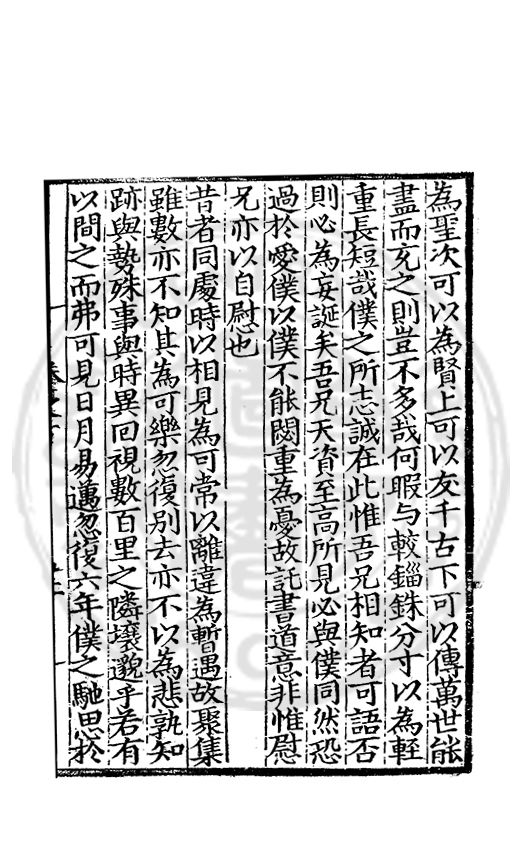 為聖次可以為賢上可以友千古下可以傳萬世能
盡而充之則豈不多哉何暇与較錙銖分寸以為輕
重長短哉僕之所志誠在此惟吾兄相知者可語否
則必為妄誕矣吾兄天資至高所見必與僕同然恐
過於愛僕以僕不能閎重為憂故託書道意非惟慰
兄亦以自慰也
昔者同處時以相見為可常以離違為暫遇故聚集
雖數亦不知其為可樂忽復別去亦不以為悲孰知
跡與勢殊事與時異回視數百里之隣壤邈乎若有
以間之而弗可見日月易邁忽復六年僕之馳思於